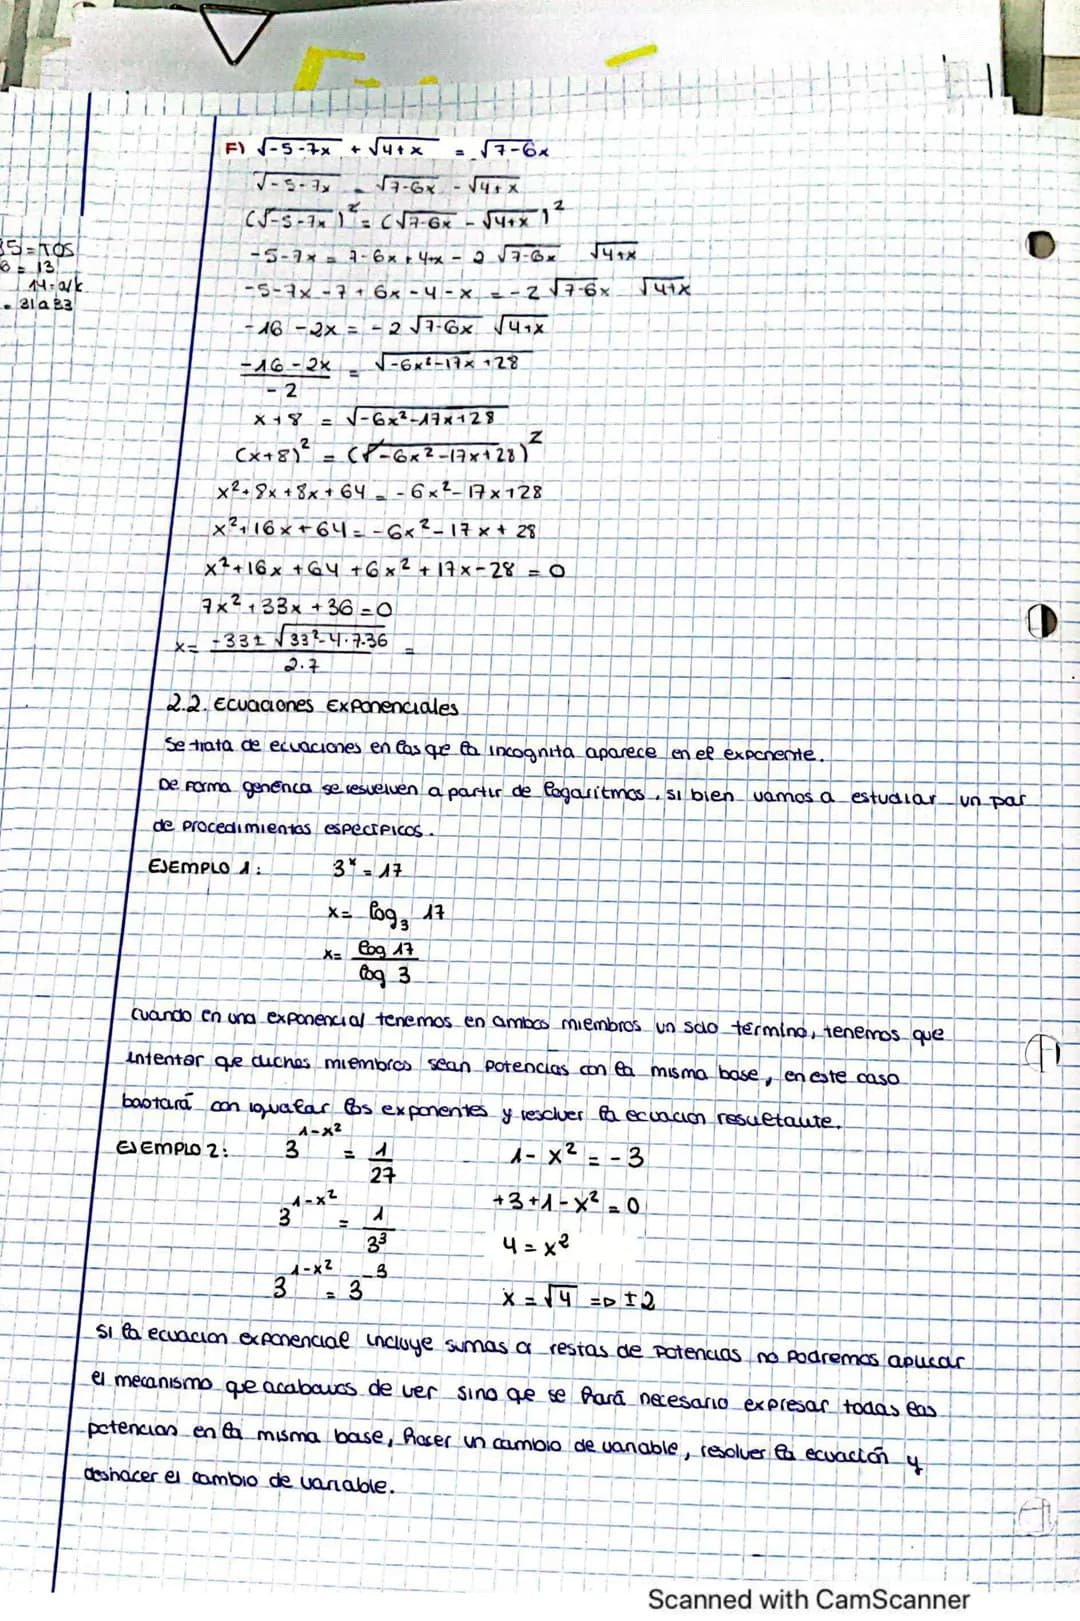 35=TOS
6 = 13
14=a/k
= 31 a 33
F) √-5-7x + √4+x = √7-6x
√-5-7x = √7-6x - √4+x
(√-5-7x)² = (√7-6x - √4+x)²
-5-7x = 7-6x+4+x - 2 √7-6x √4+x
-5-7x-7+6x-4-x = -2 √7-6x √4+x
-16-2x = -2 √7-6x √4+x
-16-2x / -2 = √-6x²-17x+28
x+8 = √-6x²-17x+28
(x+8)² = (√-6x²-17x+28)²
x²+8x+8x+64 = -6x²-17x+28
x²+16x+64 = -6x²-17x+28
x²+16x+64+6x²+17x-28 = 0
7x²+33x+36=0
x= -33± √33²-4·7·36 / 2·7 =
2.2. Ecuaciones Exponenciales
Se trata de ecuaciones en las que la incognita aparece en el exponente.
De forma genérica se resuelven a partir de logaritmos, si bien vamos a estudiar un par
de procedimientos específicos.
EJEMPLO 1: 3ˣ = 17
x= log₃ 17
x= log 17 / log 3
cuando en una exponencial tenemos en ambos miembros un solo término, tenemos que
intentar que dichos miembros sean potencias con la misma base, en este caso
bastará con igualar los exponentes y resolver la ecuación resultante.
EJEMPLO 2: 3^1-x² = 1/27 1-x² = -3
3^1-x² = 1/3³ +3+1-x² = 0
4 = x²
3^1-x² = 3^-3 x = √4 => ±2
Si la ecuación exponencial incluye sumas o restas de potencias no podremos aplicar
el mecanismo que acabamos de ver sino qe se hará necesario expresar todas las
potencias en la misma base, hacer un cambio de variable, resolver la ecuación y
deshacer el cambio de variable.
Scanned with CamScanner